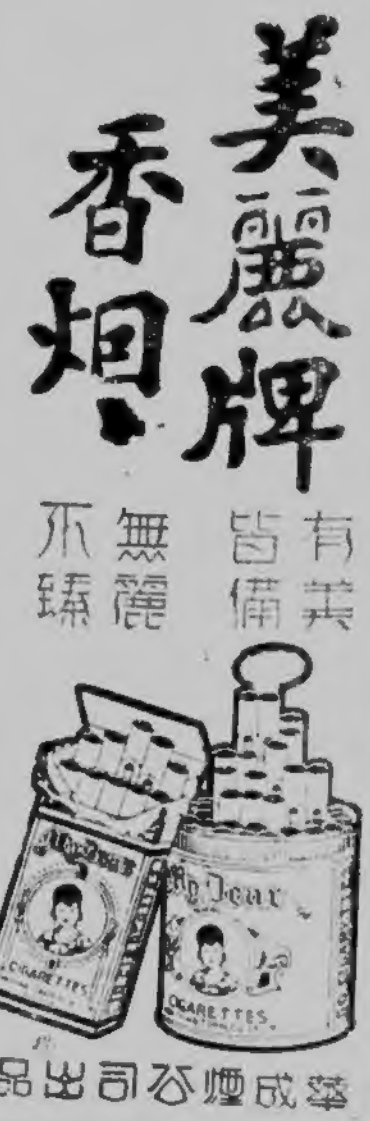 美麗牌
香烟
有美
皆備
無麗
不臻
My Dear
CIGARETTES
My Dear
CIGARETTES
華成煙公司出品